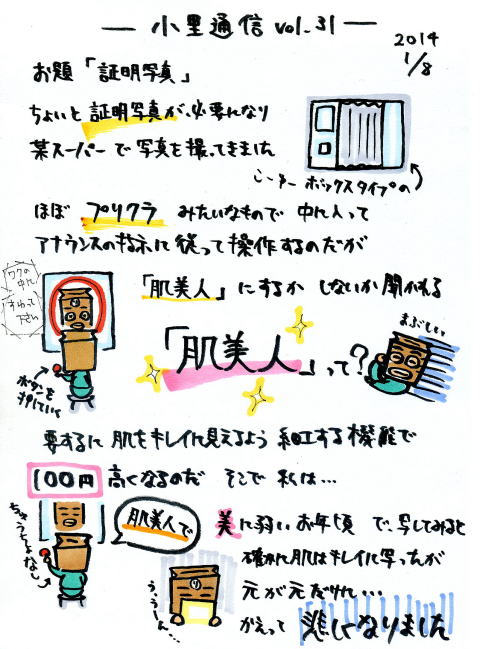 小里通信 vol.31
2014
1/8
お題「証明写真」
ちょいと証明写真が、必要になり
某スーパーで写真を撮ってきました
こーゆーボックスタイプの
ほぼ プリクラ みたいなもので 中に入って
アナウンスの指示に従って操作するのだが
ワクの
中に
すわって
下さい
「肌美人」にするか しないか聞かれる
「肌美人」って?
まぶしい
ボタンを
押していく
要するに 肌をキレイに見えるよう 細工する機能で
100円 高くなるのだ そこで 私は…
ちゅうちょなし
肌美人で
美に弱いお年頃 で、写してみると
確かに肌はキレイに写ったが
う、うーん…
元が元だけに…
かえって 悲しくなりました